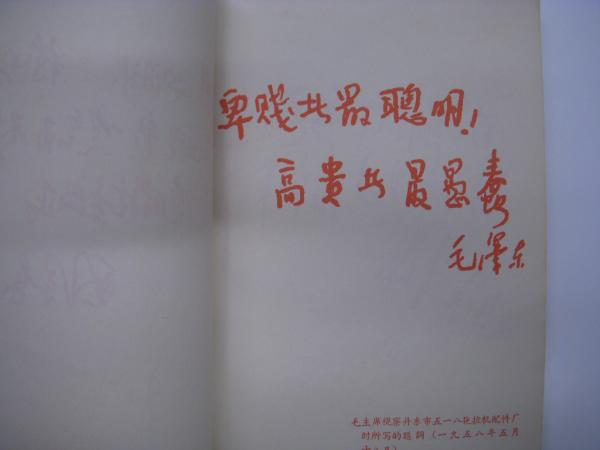 卑賤者最聰明!
高貴者最愚蠢
毛澤东
毛主席視察丹东市五一八拖拉机配件厂
时所写的題詞(一九五八年五月